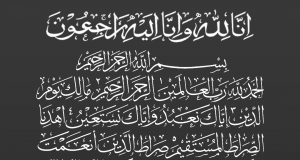 إنا لله وإنا إليه راجعون
بسم الله الرحمن الرحيم
الحمد لله رب العالمين الرحمن الرحيم مالك يوم
الدين إياك نعبد وإياك نستعين اهدنا
الصراط المستقيم صراط الذين أنعمت